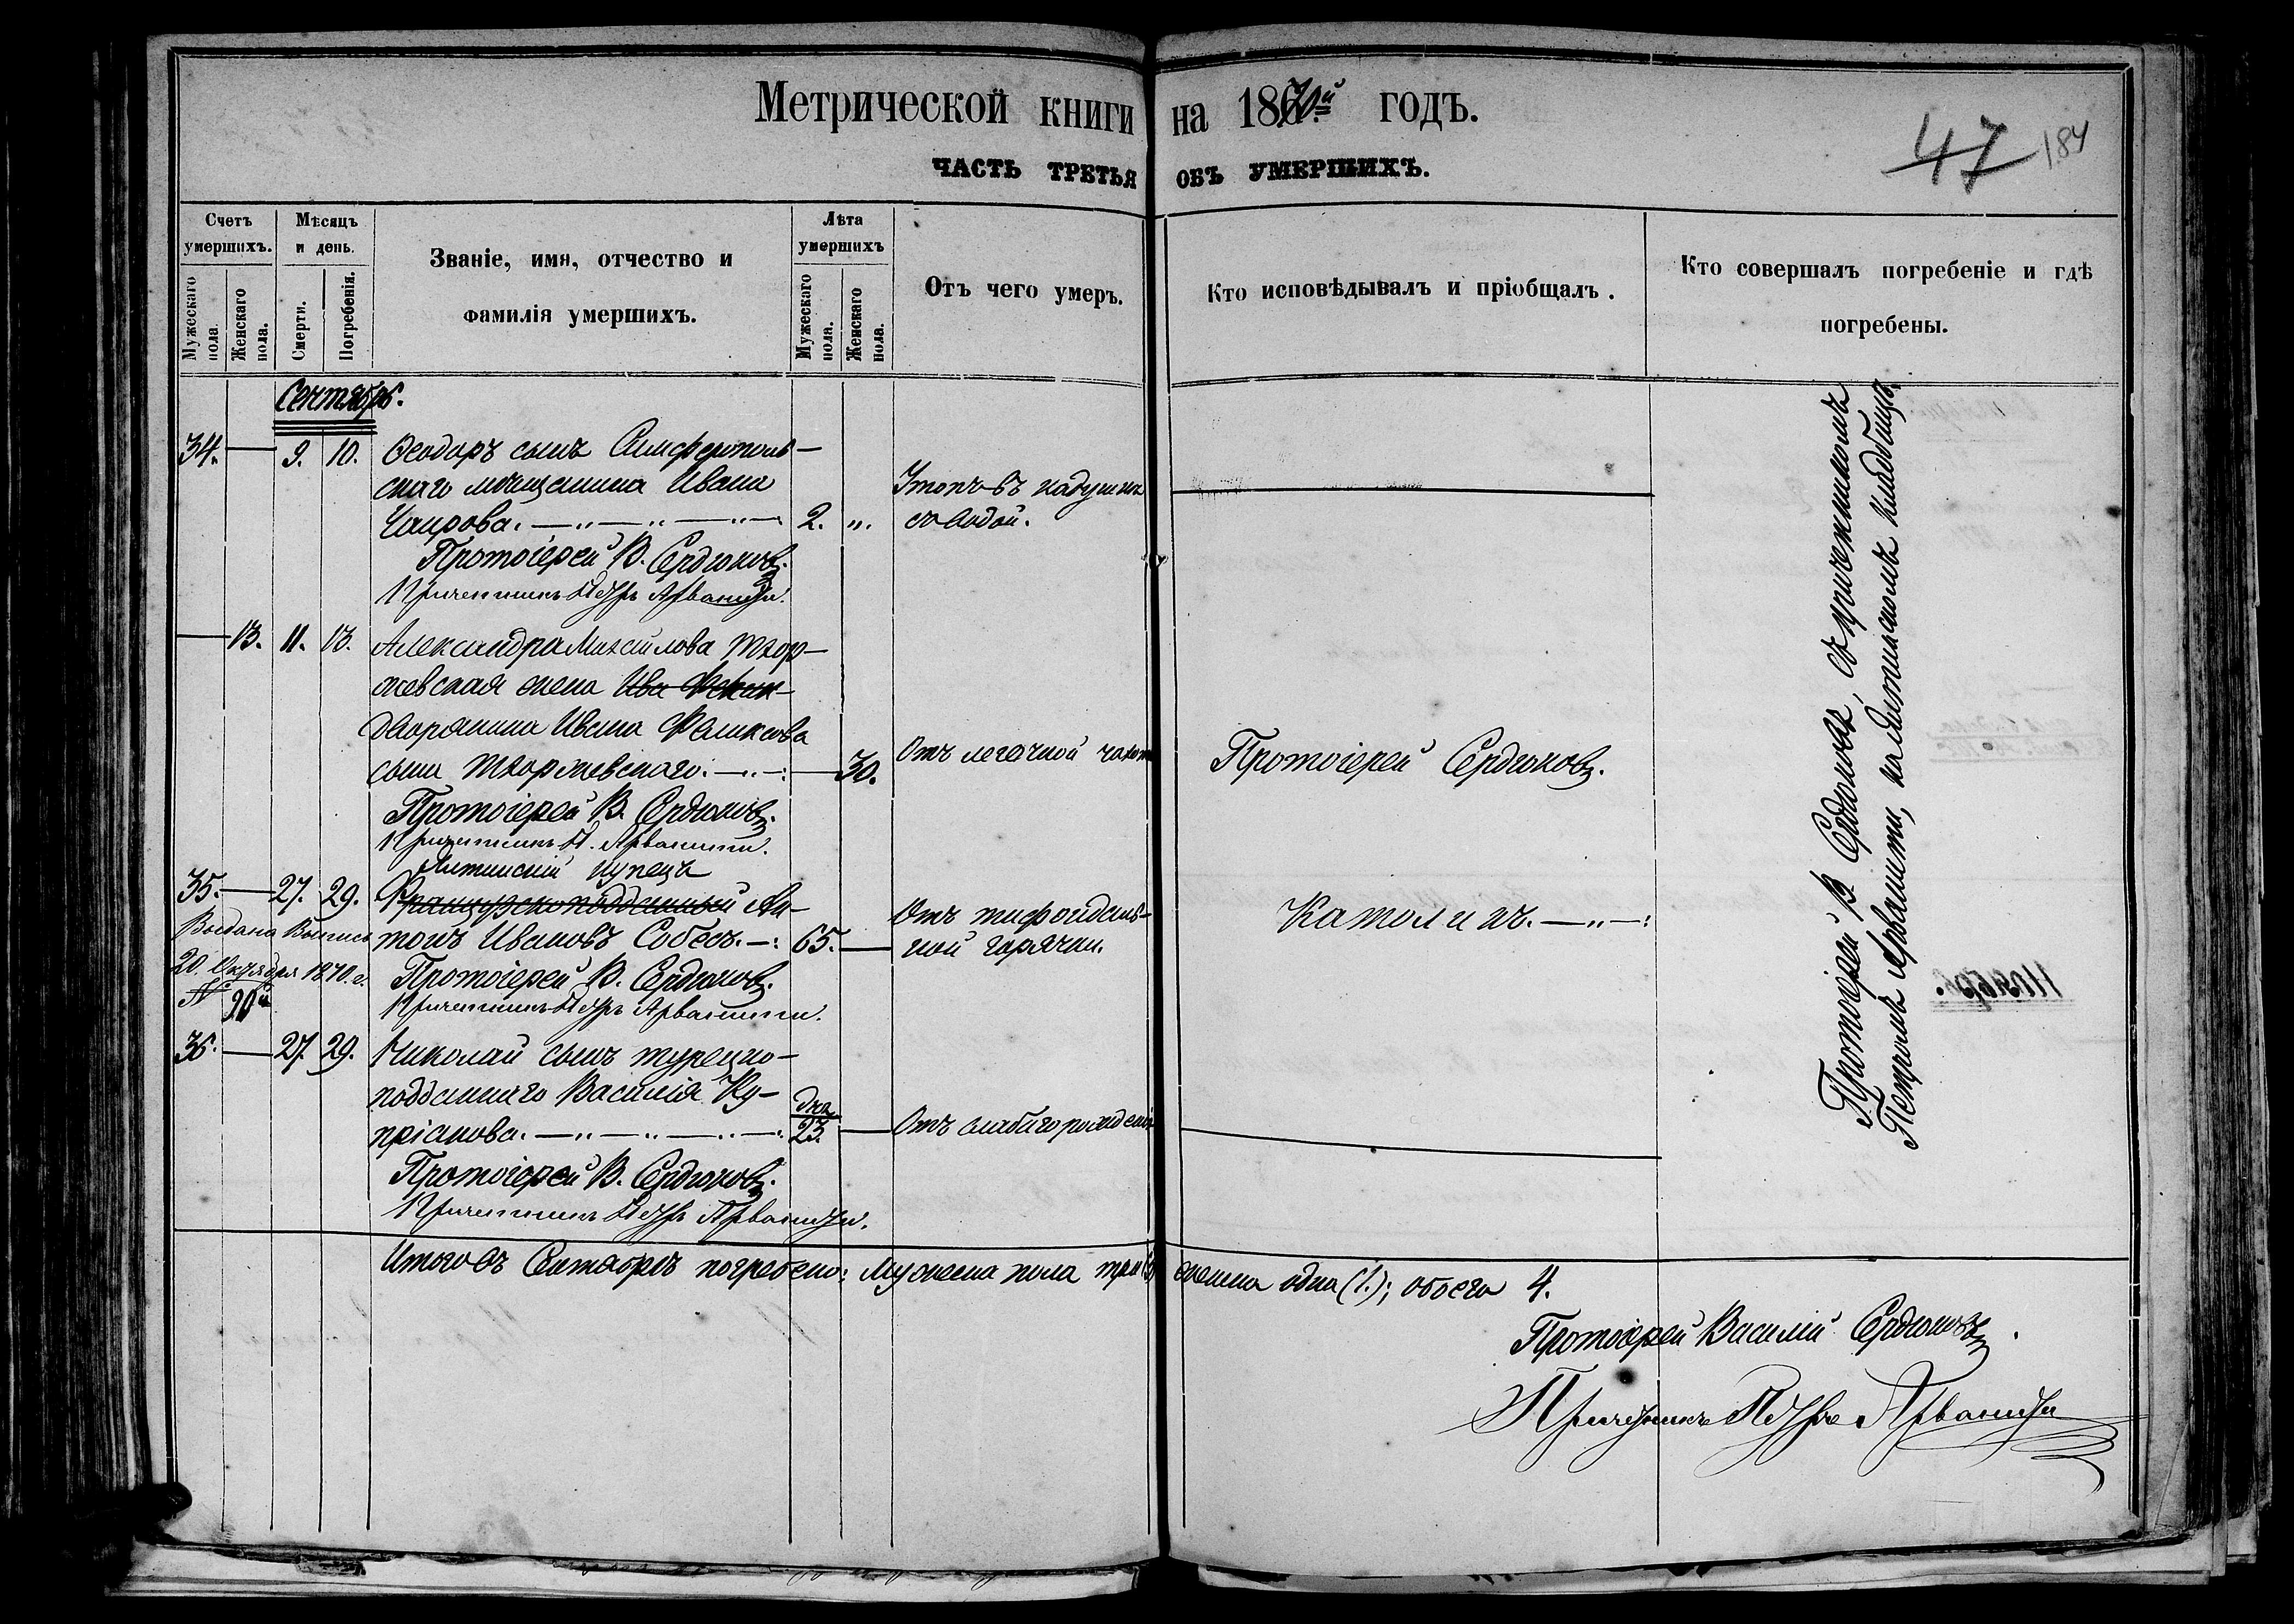 Метрической книги на 1870й годъ.
47 184
ЧАСТЬ ТРЕТЬЯ ОБЪ УМЕРШИХЪ.
Счетъ умершихъ.
Мужескаго пола
Женскаго пола.
Мѣсяцъ и день.
Смерти.
Погребенія.
Званіе, имя, отчество и
фамилія умершихъ.
Лѣта умершихъ
Мужескаго пола.
Женскаго пола.
Отъ чего умеръ.
Кто исповѣдывалъ и пріобщалъ.
Кто совершалъ погребеніе и гдѣ
погребены.
Сентябрь.
34. — 9. 10. Ѳеодоръ сынъ Симферополь-
скаго мѣщанина Ивана
Чаирова. 2. "
Утопъ въ кадушкѣ
съ водой.
Протоіерей В. Сердюковъ.
Причетникъ Петръ Арванити.
— 13. 11. 13. Александра Михайлова Тхор-
жевская жена Ива Феликс-
дворянина Ивана Феликсова
сына Тхоржевскаго. — 30.
Отъ легочной чахот
Протоіерей Сердюковъ.
Протоіерей В. Сердюковъ.
Причетникъ П. Арванити.
Ялтинскій купецъ
35. — 27. 29. Французскоподданный Ан-
тонъ Ивановъ Собесъ. 65. —
Отъ тифоидаль-
ной горячки.
Католикъ.
Выдана Выпись
20. Октября 1870. г.
N 90й
Протоіерей В. Сердюковъ.
Причетникъ Петръ Арванити.
36. — 27. 29. Николай сынъ турецко-
подданнаго Василія Ку-
пріанова. дня 23. —
Отъ слабаго рожденія
Протоіерей В. Сердюковъ.
Причетникъ Петръ Арванити.
Протоіерей В. Сердюковъ, съ причетникомъ
Петромъ Арванити, на Ялтинскомъ кладбищѣ.
Итого въ Сентябрѣ погребено: мужеска пола три (3) женска одна (1.); обоего 4.
Протоіерей Василій Сердюковъ.
Причетникъ Петръ Арванити